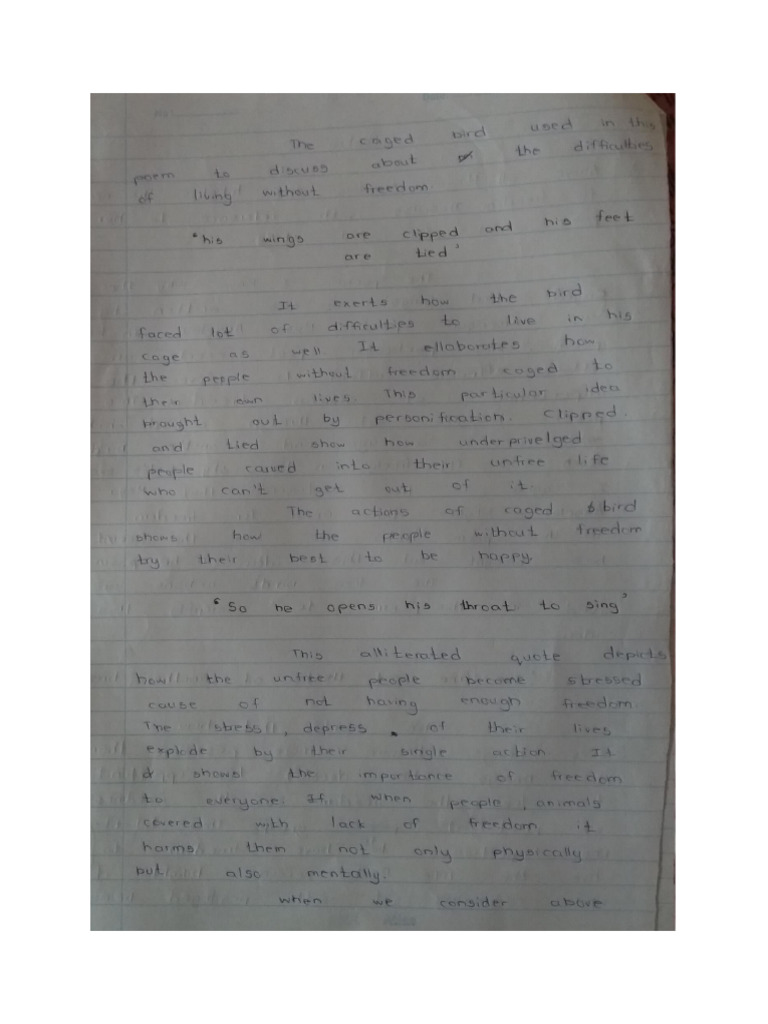 The caged bird used in this
poem to discuss about the difficulties
of living without freedom.
"his wings are clipped and his feet
are tied'
It exerts how the bird
faced lot of difficulties to live in his
cage as well It elloborates how
the people without freedom caged to
their own lives This particular idea
brought out by personification. Clipped
and tied show how underprivelged
people caused into their unfree life
who can't get out of it.
The actions of caged bird
shows how the people without freedom
try their best to be happy.
"So he opens his throat to sing'
This alliterated quote depicts
how the unfree people become stressed
cause of not having enough freedom
The stress, depress of their lives
explode by their single action It
shows the importance of freedom
to everyone. If when people, animals
covered with lack of freedom it
harms them not only physically
but also mentally.
When we consider above